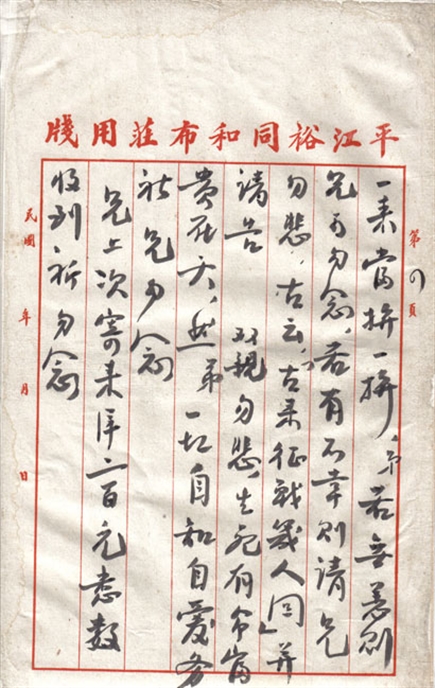 平江裕同和布莊用牋
第 頁
一来當拚一拚,弟若無恙則
兄可勿念,若有不幸則請兄
勿悲,古云,「古来征戰幾人回」并
請告 双親勿悲,生死有命富
貴在天,然弟一切自知自愛务
祈 兄勿念
兄上次寄来洋二百元悉数
收到祈勿念
民國 年 月 日